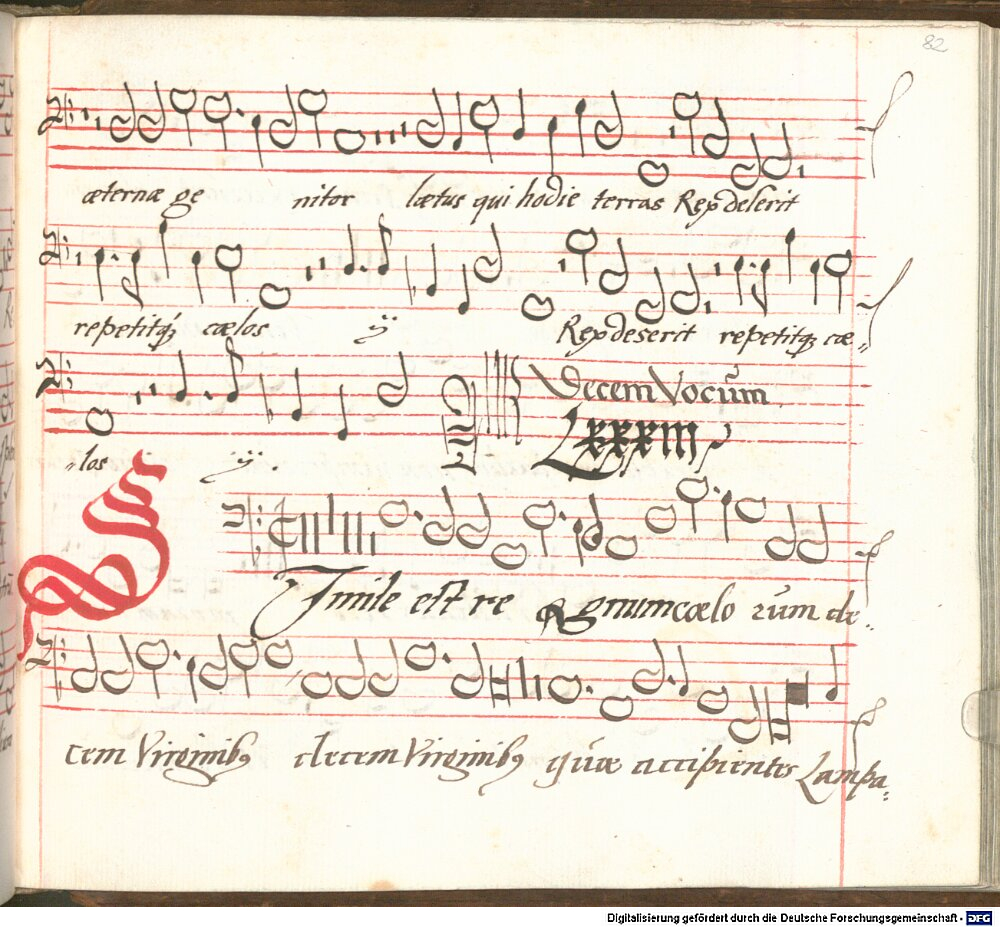 82
æternæ ge nitor lætus qui hodie terras Rep deserit
repetitq; cælos ÿ Rep deserit repetitq; cæ„
„los ÿ. Decem Vocum
LXXXIII
Simile est re Regnum cælo rum de„
cem Virginib9 decem Virginib9 quæ accipientes Lampa„
Digitalisierung gefördert durch die Deutsche Forschungsgemeinschaft - DFG